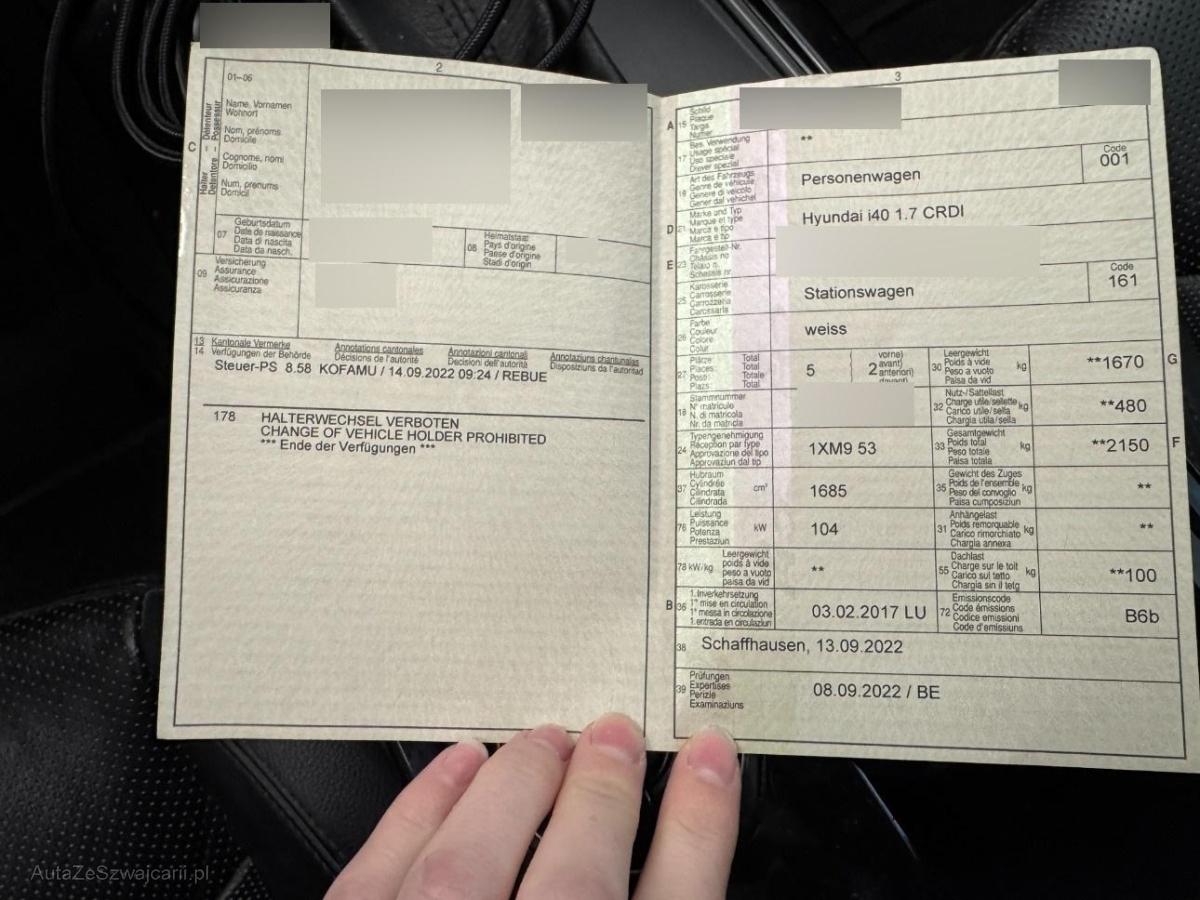 2
01–06
Name, Vornamen
Wohnort
Nom, prénoms
Domicile
Cognome, nomi
Domicilio
Num, prenums
Domicil
C
Halter – Détenteur
Detentore – Possessur
07
Geburtsdatum
Date de naissance
Data di nascita
Data da nasch.
08
Heimatstaat
Pays d'origine
Paese d'origine
Stadi d'origin
09
Versicherung
Assurance
Assicurazione
Assicuranza
13
14
Kantonale Vermerke
Verfügungen der Behörde
Annotations cantonales
Décisions de l'autorité
Annotazioni cantonali
Decisioni dell'autorità
Annotaziuns chantunalas
Disposiziuns da l'autoritad
Steuer-PS 8.58 KOFAMU / 14.09.2022 09:24 / REBUE
178 HALTERWECHSEL VERBOTEN
CHANGE OF VEHICLE HOLDER PROHIBITED
*** Ende der Verfügungen ***
3
A
15
Schild
Plaque
Targa
Numer
17
Bes. Verwendung
Usage spécial
Uso speciale
Diever spezial
**
Art des Fahrzeugs
Genre de véhicule
Genere di veicolo
Gener dal vehichel
Personenwagen
Code
001
D
21
Marke und Typ
Marque et type
Marca e tipo
Marca e tip
Hyundai i40 1.7 CRDI
E
23
Fahrgestell-Nr.
Châssis no
Telaio n.
Schassis nr.
25
Karosserie
Carrosserie
Carrozzeria
Carossaria
Stationswagen
Code
161
26
Farbe
Couleur
Colore
Colur
weiss
27
Plätze Total
Places: Total
Posti: Totale
Plazs: Total
5
2
vorne)
avant)
anteriori)
davant)
30
Leergewicht
Poids à vide
Peso a vuoto
Paisa da vid
kg
**1670
G
18
Stammnummer
N° matricule
N. di matricola
Nr. da matricla
32
Nutz-/Sattellast
Charge utile/sellette
Carico utile/sella
Chargia utila/sella
kg
**480
24
Typengenehmigung
Réception par type
Approvazione del tipo
Approvaziun dal tip
1XM9 53
33
Gesamtgewicht
Poids total
Peso totale
Paisa totala
kg
**2150
F
37
Hubraum
Cylindrée
Cilindrata
Cilindrada
cm³
1685
35
Gewicht des Zuges
Poids de l'ensemble
Peso del convoglio
Paisa cumposiziun
kg
**
76
Leistung
Puissance
Potenza
Prestaziun
kW
104
31
Anhängelast
Poids remorquable
Carico rimorchiato
Chargia annexa
kg
**
78 kW/kg
Leergewicht
poids à vide
peso a vuoto
paisa da vid
**
55
Dachlast
Charge sur le toit
Carico sul tetto
Chargia sin il tetg
kg
**100
B
36
1. Inverkehrsetzung
1re mise en circulation
1a messa in circolazione
1. entrada en circulaziun
03.02.2017 LU
72
Emissionscode
Code émissions
Codice emissioni
Code d'emissiuns
B6b
38
Schaffhausen, 13.09.2022
39
Prüfungen
Expertises
Perizie
Examinaziuns
08.09.2022 / BE
AutaZeSzwajcarii.pl